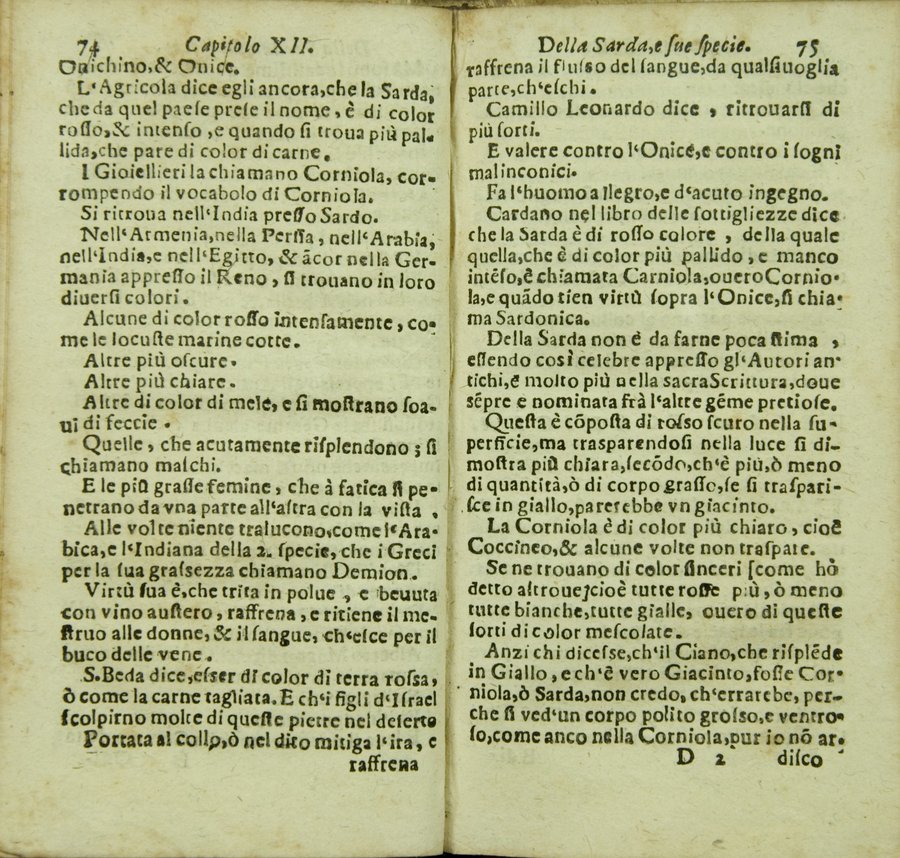 74 Capitolo XII.
Onichino,& Onice.
L'Agricola dice egli ancora,che la Sarda,
che da quel paese prese il nome, è di color
rosso,& intenso ,e quando si troua più pal-
lida,che pare di color di carne.
I Gioiellieri la chiamano Corniola, cor-
rompendo il vocabolo di Corniola.
Si ritroua nell'India presso Sardo.
Nell'Armenia,nella Persia, nell'Arabia,
nell'India,e nell'Egitto, & ãcor nella Ger-
mania appresso il Reno, si trouano in loro
diuersi colori.
Alcune di color rosso intensamente, co-
me le locuste marine cotte.
Altre più oscure.
Altre più chiare.
Altre di color di mele, e si mostrano soa-
ui di feccie .
Quelle, che acutamente risplendono ; si
chiamano maschi.
E le più grasse femine, che à fatica si pe-
netrano da vna parte all'altra con la vista .
Alle volte niente tralucono,come l'Ara-
bica,e l'Indiana della 2. specie, che i Greci
per la sua grassezza chiamano Demion.
Virtù sua è,che trita in polue , e beuuta
con vino austero, raffrena, e ritiene il me-
struo alle donne, & il sangue, ch'esce per il
buco delle vene.
S.Beda dice,esser di color di terra rossa,
ò come la carne tagliata. E ch'i figli d'Israel
scolpirno molte di queste pietre nel deserto
Portata al collo,ò nel dito mitiga l'ira, e
raffrena
Della Sarda,e sue specie. 75
raffrena il flusso del sangue,da qualsiuoglia
parte,ch'eschi.
Camillo Leonardo dice , ritrouarsi di
più sorti.
E valere contro l'Onice,e contro i sogni
malinconici.
Fa l'huomo allegro,e d'acuto ingegno.
Cardano nel libro delle sottigliezze dice
che la Sarda è di rosso colore , della quale
quella,che è di color più pallido, e manco
intẽso,è chiamata Carniola,ouero Cornio-
la,e quãdo tien virtù sopra l'Onice,si chia-
ma Sardonica.
Della Sarda non è da farne poca stima ,
essendo così celebre appresso gl'Autori an-
tichi,e molto più nella sacra Scrittura,doue
sẽpre e nominata frà l'altre gẽme pretiose.
Questa è cõposta di rosso scuro nella su-
perficie,ma trasparendosi nella luce si di-
mostra più chiara,secõdo,ch'è più,ò meno
di quantità,ò di corpo grasso,se si traspari-
sce in giallo,parerebbe vn giacinto.
La Corniola è di color più chiaro, cioè
Coccineo,& alcune volte non traspate.
Se ne trouano di color sinceri [come hò
detto altroue]cioè tutte rosse più, ò meno
tutte bianche,tutte gialle, ouero di queste
sorti di color mescolate.
Anzi chi dicesse,ch'il Ciano,che risplẽde
in Giallo, e ch'è vero Giacinto, fosse Cor-
niola,ò Sarda,non credo, ch'errarebe, per-
che si ved'un corpo polito grosso,e ventro-
so,come anco nella Corniola,pur io nõ ar.
D 2 disco